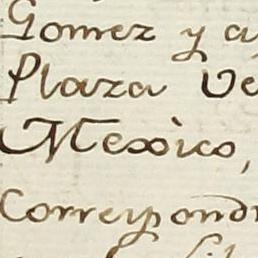 Gomez y a
Plaza Ve
Mexico,
Correspond